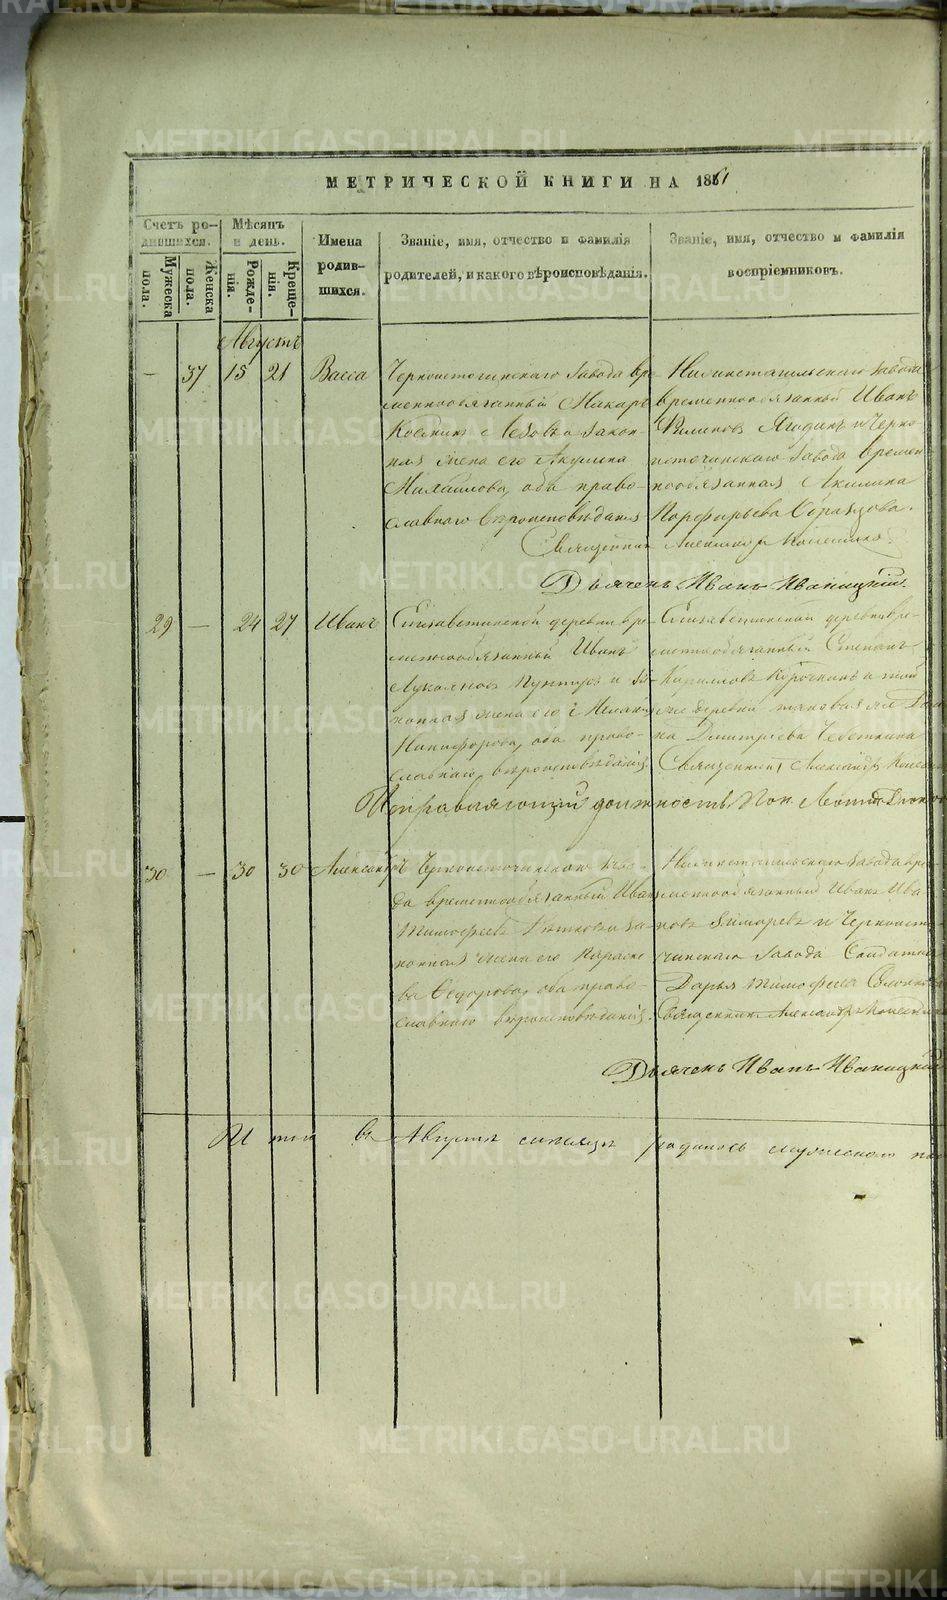 МЕТРИЧЕСКОЙ КНИГИ НА 1861
Счетъ родившихся.
Мужеска пола.
Женска пола.
Мѣсяцъ и день.
Рожденія.
Крещенія.
Имена родившихся.
Званіе, имя, отчество и фамилія
родителей, и какого вѣроисповѣданія.
Званіе, имя, отчество и фамилія
воспріемниковъ.
Августъ
— 37 15 21 Васса
Черноисточинскаго завода вре-
меннообязанный Макаръ
законная жена его Акулина
Михайлова, оба право-
славнаго вѣроисповѣданія
Нижнетагильскаго завода
временнообязанный Иванъ
Филиповъ Ягодинъ и Черно-
источинскаго завода времен-
нообязанная Акилина
Порфирьева Образцова.
Священникъ Александръ
Дьячекъ Иванъ Иваницкій.
29 — 24 27 Иванъ
Елизаветинской деревни вре-
меннообязанный Иванъ
Лукояновъ и за-
конная жена его
Никифорова, оба право-
славнаго вѣроисповѣданія.
Елизаветинской деревни вре-
меннообязанный Степанъ
Кирилловъ и той
же деревни таковая же
Дмитріева
Священникъ Александръ
Исправляющій должность Пон.
30 — 30 30 Александръ
Черноисточинскаго заво-
да временнообязанный Иванъ
Тимофеевъ за-
конная жена его Параске-
ва Федорова, оба право-
славнаго вѣроисповѣданія.
Нижнетагильскаго завода вре-
меннообязанный Иванъ Ива
новъ и Черноисто-
чинскаго завода Солдатка
Дарья Тимофеева
Священникъ Александръ
Дьячекъ Иванъ Иваницкій
Итого въ Августѣ мѣсяцѣ родилось мужескаго пола
METRIKI.GASO-URAL.RU